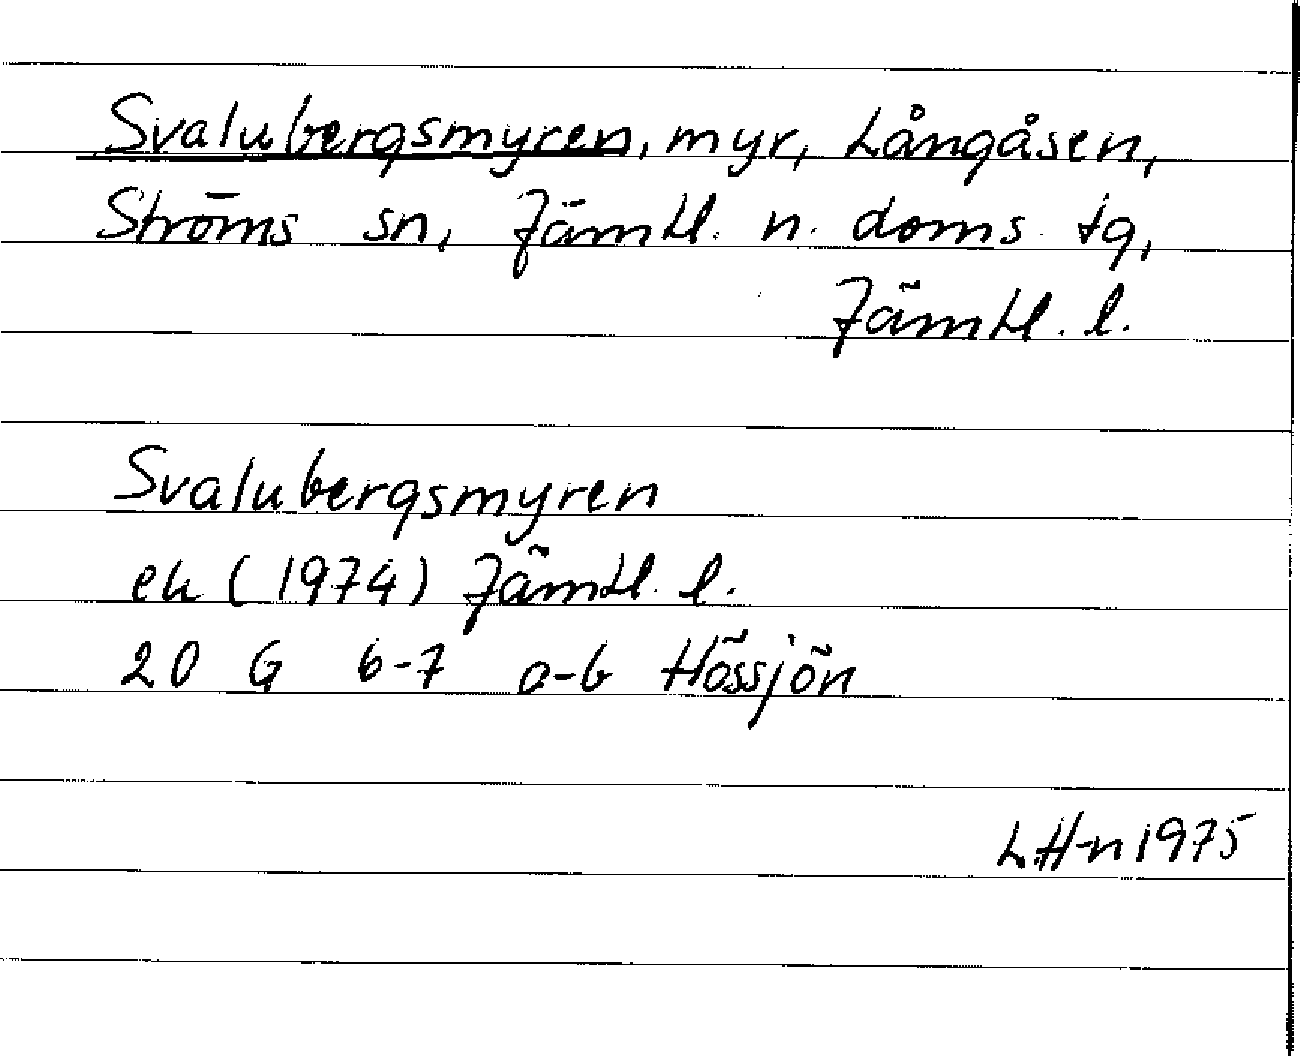 Svalubergsmyren, myr, Långåsen,
Ströms sn, Jämtl. n. doms. tg,
Jämtl. l.
Svalubergsmyren
ek (1974) Jämtl. l.
20 G 6-7 a-b Hössjön
LH-n 1975